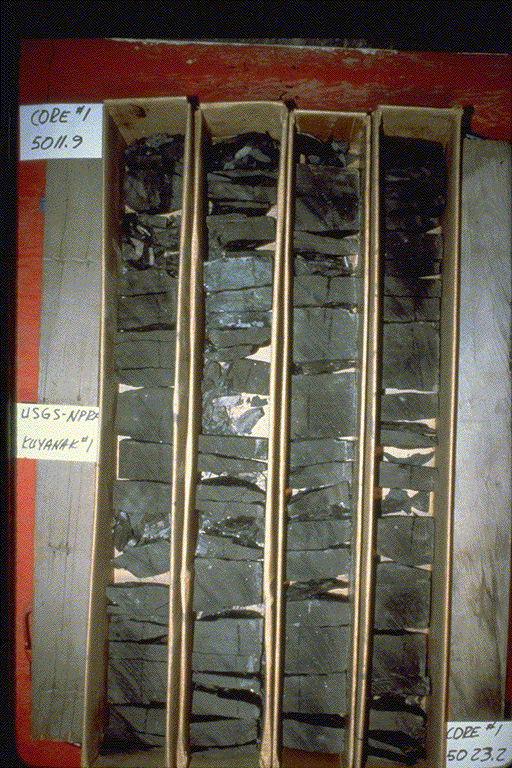 CORE #1
5011.9
USGS-NPRA
KUYANAK #1
CORE #1
5023.2